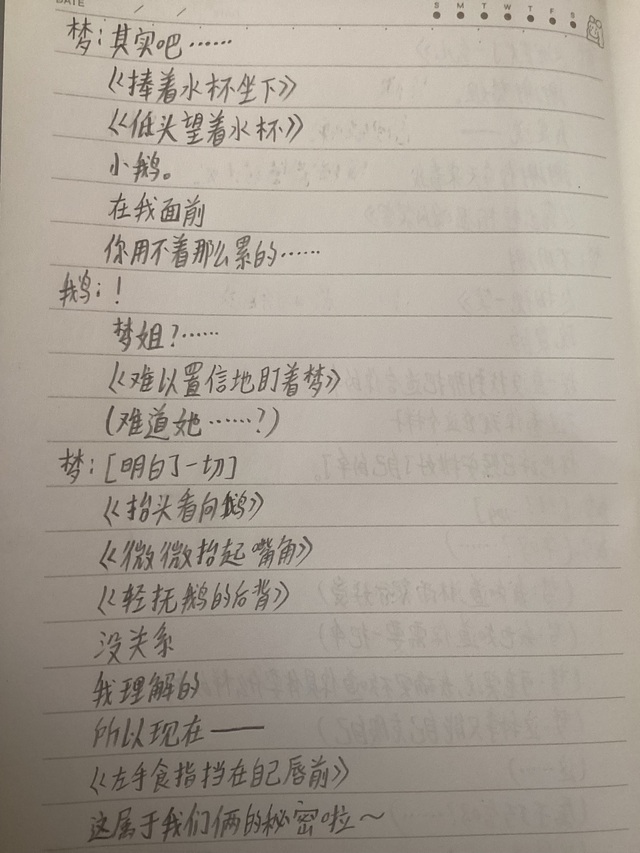 DATE / /
S M T W T F S
梦:其实吧……
《捧着水杯坐下》
《低头望着水杯》
小鹅。
在我面前
你用不着那么累的……
鹅:!
梦姐?……
《难以置信地盯着梦》
(难道她……?)
梦:[明白了一切]
《抬头看向鹅》
《微微抬起嘴角》
《轻抚鹅的后背》
没关系
我理解的
所以现在——
《左手食指挡在自己唇前》
这属于我们俩的秘密啦~